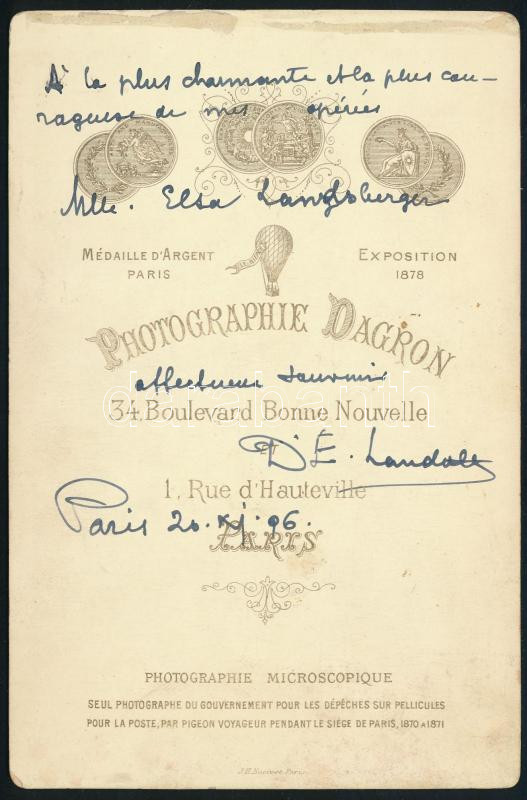 À la plus charmante et la plus cou-
rageuse de mes opérées
Mlle. Elsa Landsberger
MÉDAILLE D'ARGENT
PARIS
EXPOSITION
1878
PHOTOGRAPHIE DAGRON
affectueux souvenir
34, Boulevard Bonne Nouvelle
ET
Dr E. Landolt
1, Rue d'Hauteville
Paris 20. XI. 96.
PARIS
PHOTOGRAPHIE MICROSCOPIQUE
SEUL PHOTOGRAPHE DU GOUVERNEMENT POUR LES DÉPÊCHES SUR PELLICULES
POUR LA POSTE, PAR PIGEON VOYAGEUR PENDANT LE SIÈGE DE PARIS, 1870 A 1871